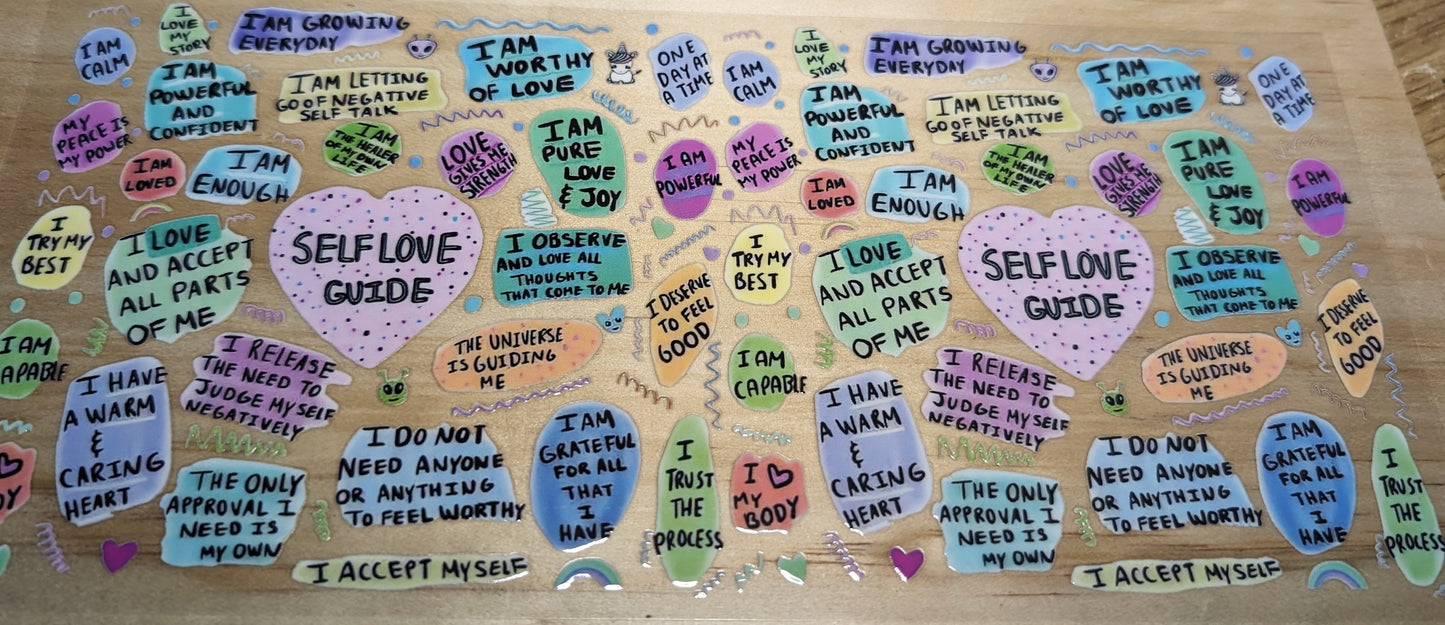 I
LOVE
MY
STORY
I AM GROWING
EVERYDAY
I AM
CALM
I AM
POWERFUL
AND
CONFIDENT
I AM LETTING
GO OF NEGATIVE
SELF TALK
I AM
WORTHY
OF LOVE
ONE
DAY AT
A TIME
MY
PEACE IS
MY POWER
I AM
LOVED
I AM
ENOUGH
I AM
THE HEALER
OF MY OWN
LIFE
LOVE
GIVES ME
STRENGTH
I AM
PURE
LOVE
& JOY
I AM
POWERFUL
I
TRY MY
BEST
I LOVE
AND ACCEPT
ALL PARTS
OF ME
SELF LOVE
GUIDE
I OBSERVE
AND LOVE ALL
THOUGHTS
THAT COME TO ME
I DESERVE
TO FEEL
GOOD
THE UNIVERSE
IS GUIDING
ME
I AM
CAPABLE
I RELEASE
THE NEED TO
JUDGE MYSELF
NEGATIVELY
I HAVE
A WARM
&
CARING
HEART
I DO NOT
NEED ANYONE
OR ANYTHING
TO FEEL WORTHY
I AM
GRATEFUL
FOR ALL
THAT
I
HAVE
I
TRUST
THE
PROCESS
THE ONLY
APPROVAL I
NEED IS
MY OWN
I ACCEPT MYSELF
I
LOVE
MY
STORY
I AM GROWING
EVERYDAY
I AM
CALM
I AM
POWERFUL
AND
CONFIDENT
I AM LETTING
GO OF NEGATIVE
SELF TALK
I AM
WORTHY
OF LOVE
ONE
DAY AT
A TIME
MY
PEACE IS
MY POWER
I AM
LOVED
I AM
ENOUGH
I AM
THE HEALER
OF MY OWN
LIFE
LOVE
GIVES ME
STRENGTH
I AM
PURE
LOVE
& JOY
I AM
POWERFUL
I
TRY MY
BEST
I LOVE
AND ACCEPT
ALL PARTS
OF ME
SELF LOVE
GUIDE
I OBSERVE
AND LOVE ALL
THOUGHTS
THAT COME TO ME
I DESERVE
TO FEEL
GOOD
THE UNIVERSE
IS GUIDING
ME
I AM
CAPABLE
I RELEASE
THE NEED TO
JUDGE MYSELF
NEGATIVELY
I HAVE
A WARM
&
CARING
HEART
I
MY
BODY
I DO NOT
NEED ANYONE
OR ANYTHING
TO FEEL WORTHY
I AM
GRATEFUL
FOR ALL
THAT
I
HAVE
I
TRUST
THE
PROCESS
THE ONLY
APPROVAL I
NEED IS
MY OWN
I ACCEPT MYSELF